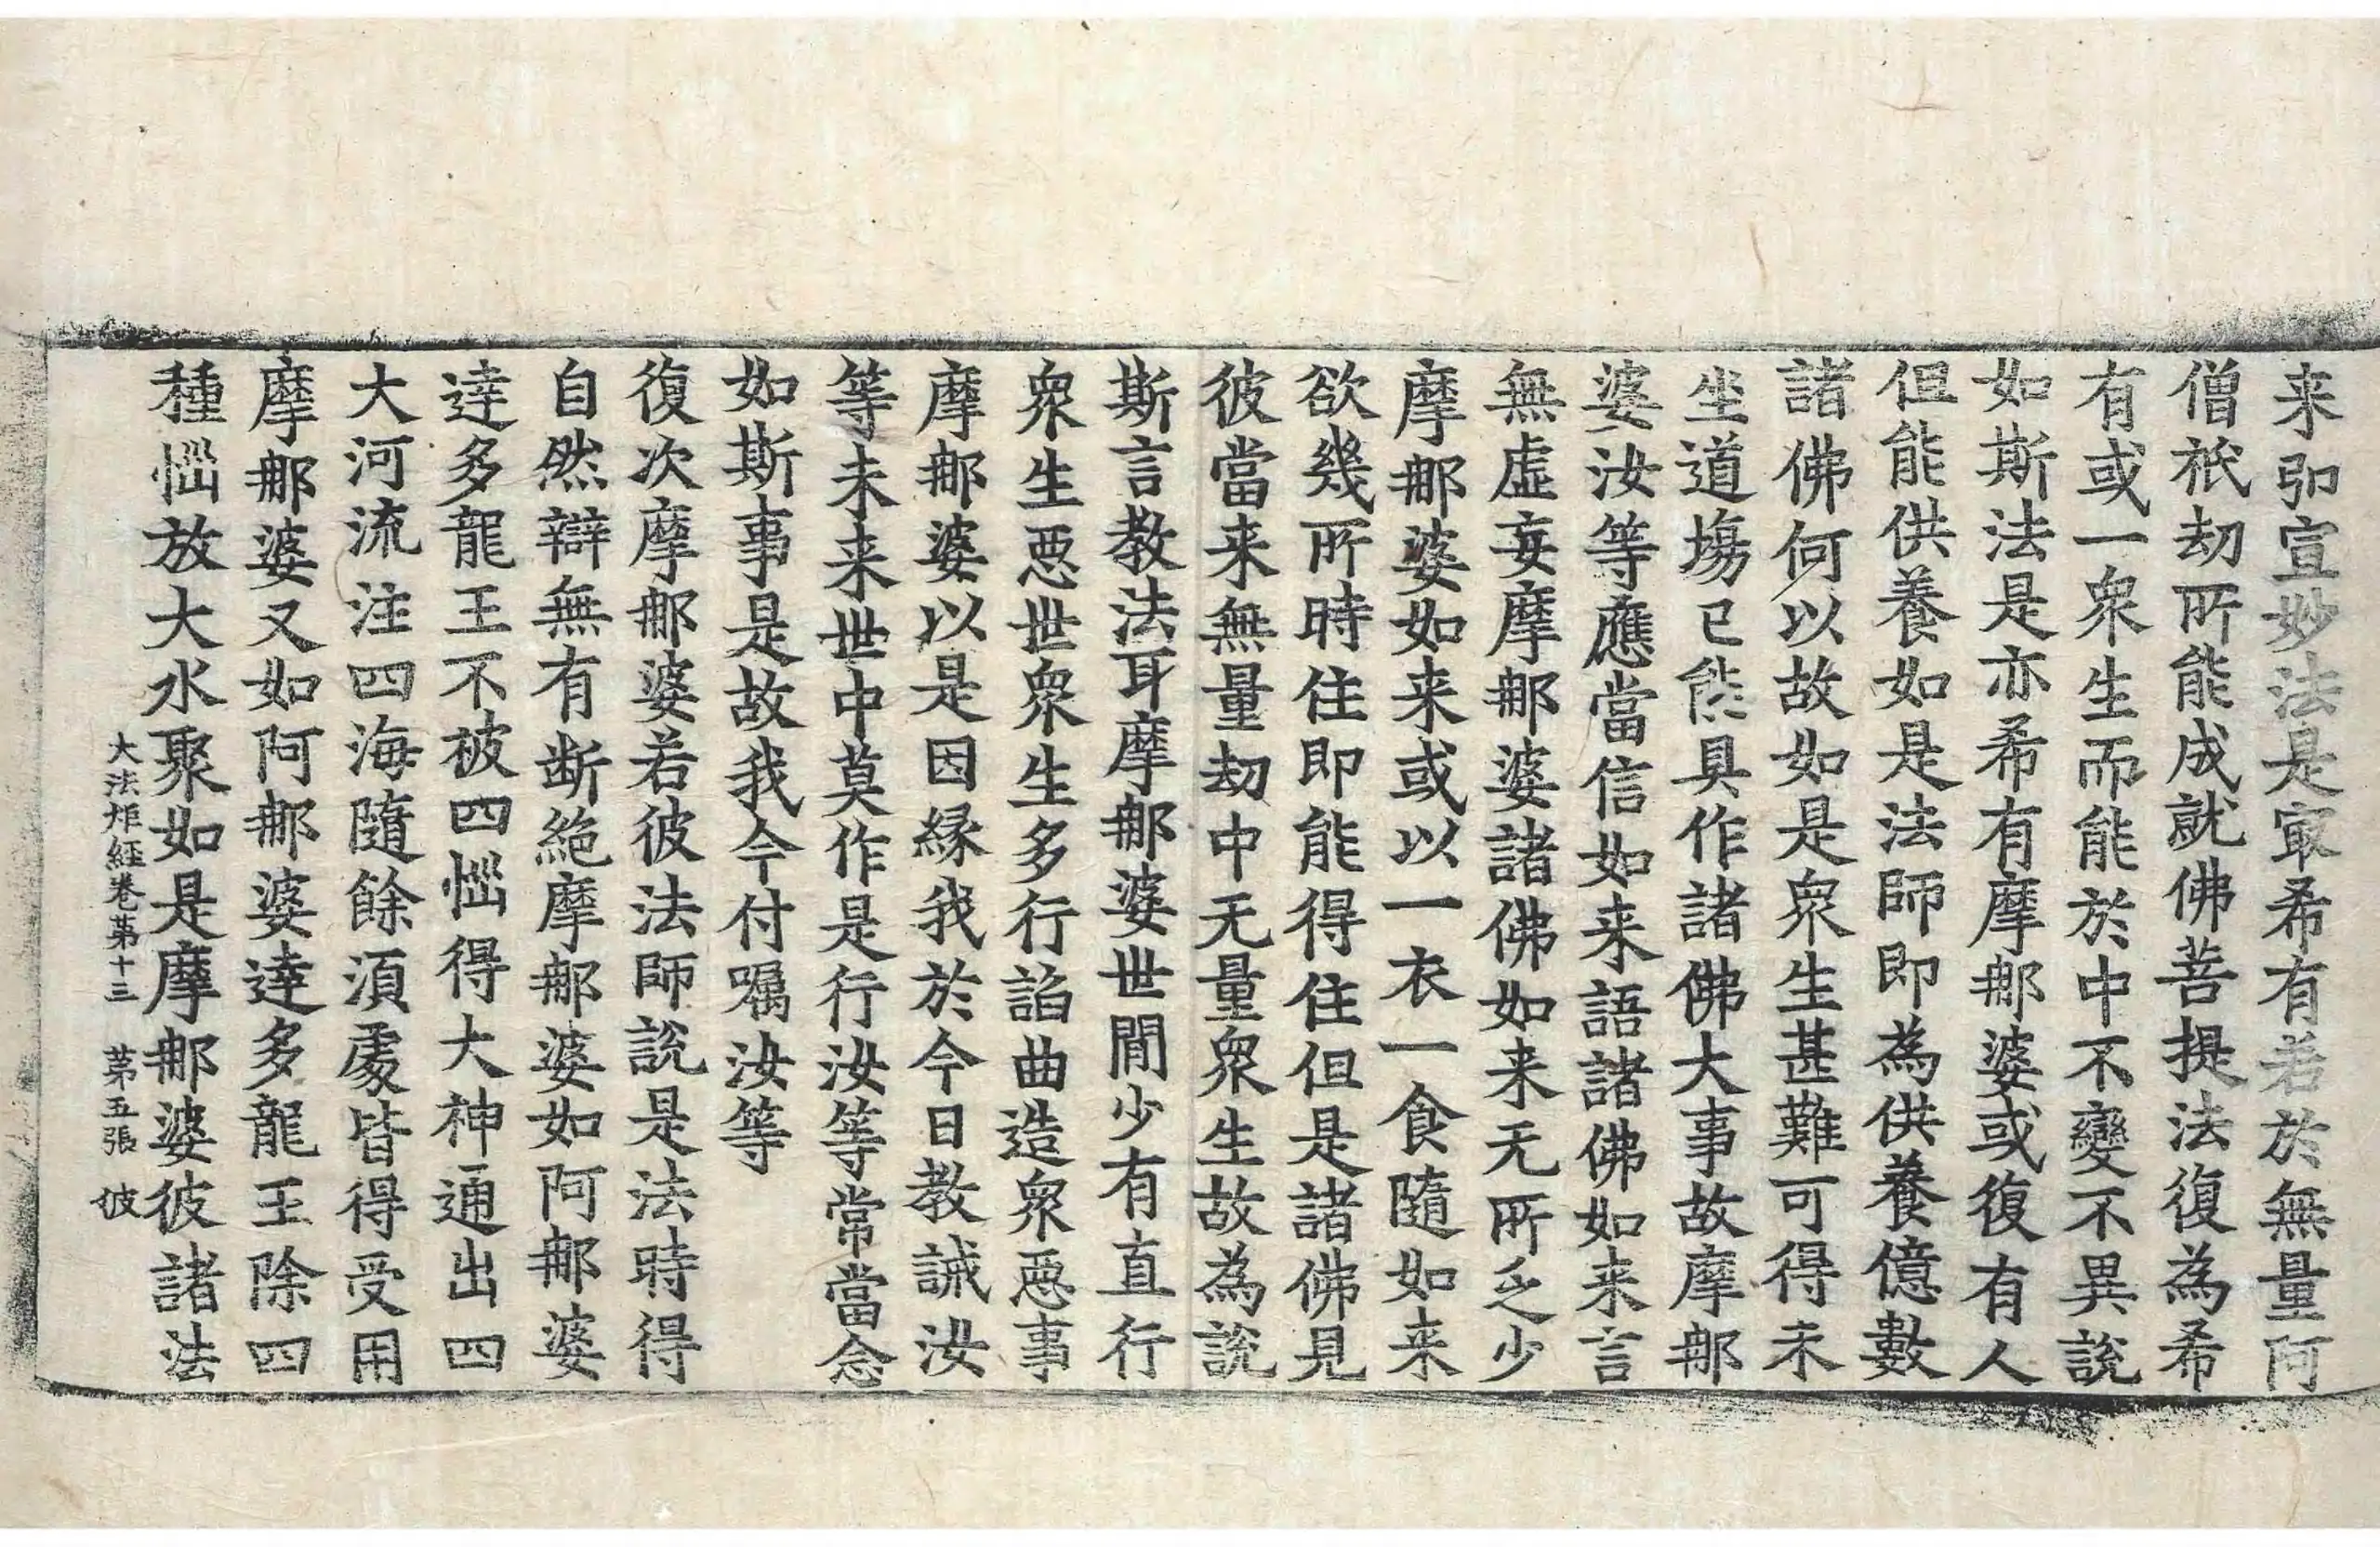 来弘宣妙法是㝡希有若於無量阿
僧祇劫所能成就佛菩提法復為希
有或一衆生而能於中不變不異說
如斯法是亦希有摩郍婆或復有人
但能供養如是法師即為供養億數
諸佛何以故如是衆生甚難可得未
坐道塲已能具作諸佛大事故摩郍
婆汝等應當信如来語諸佛如来言
無虛妄摩郍婆諸佛如来无所乏少
摩郍婆如来或以一衣一食隨如来
欲幾所時住即能得住但是諸佛見
彼當来無量劫中无量衆生故為說
斯言教法耳摩郍婆世間少有直行
衆生惡世衆生多行諂曲造衆惡事
摩郍婆以是因縁我於今日教誡汝
等未来世中莫作是行汝等常當念
如斯事是故我今付嘱汝等
復次摩郍婆若彼法師說是法時得
自然辯無有断絶摩郍婆如阿郍婆
達多龍王不被四惱得大神通出四
大河流注四海隨餘湏處皆得受用
摩郍婆又如阿郍婆達多龍王除四
種惱放大水聚如是摩郍婆彼諸法
大法炬經卷苐十三　苐五張　彼